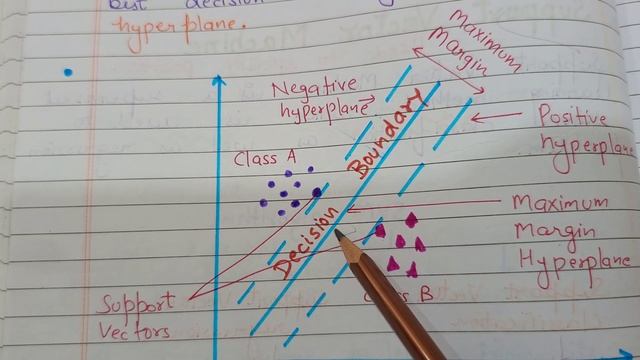 best decision
hyperplane.
Maximum
Margin
Negative
hyperplane
Positive
hyperplane
Class A
Decision Boundary
Maximum
Margin
Hyperplane
Support
Vectors
Class B